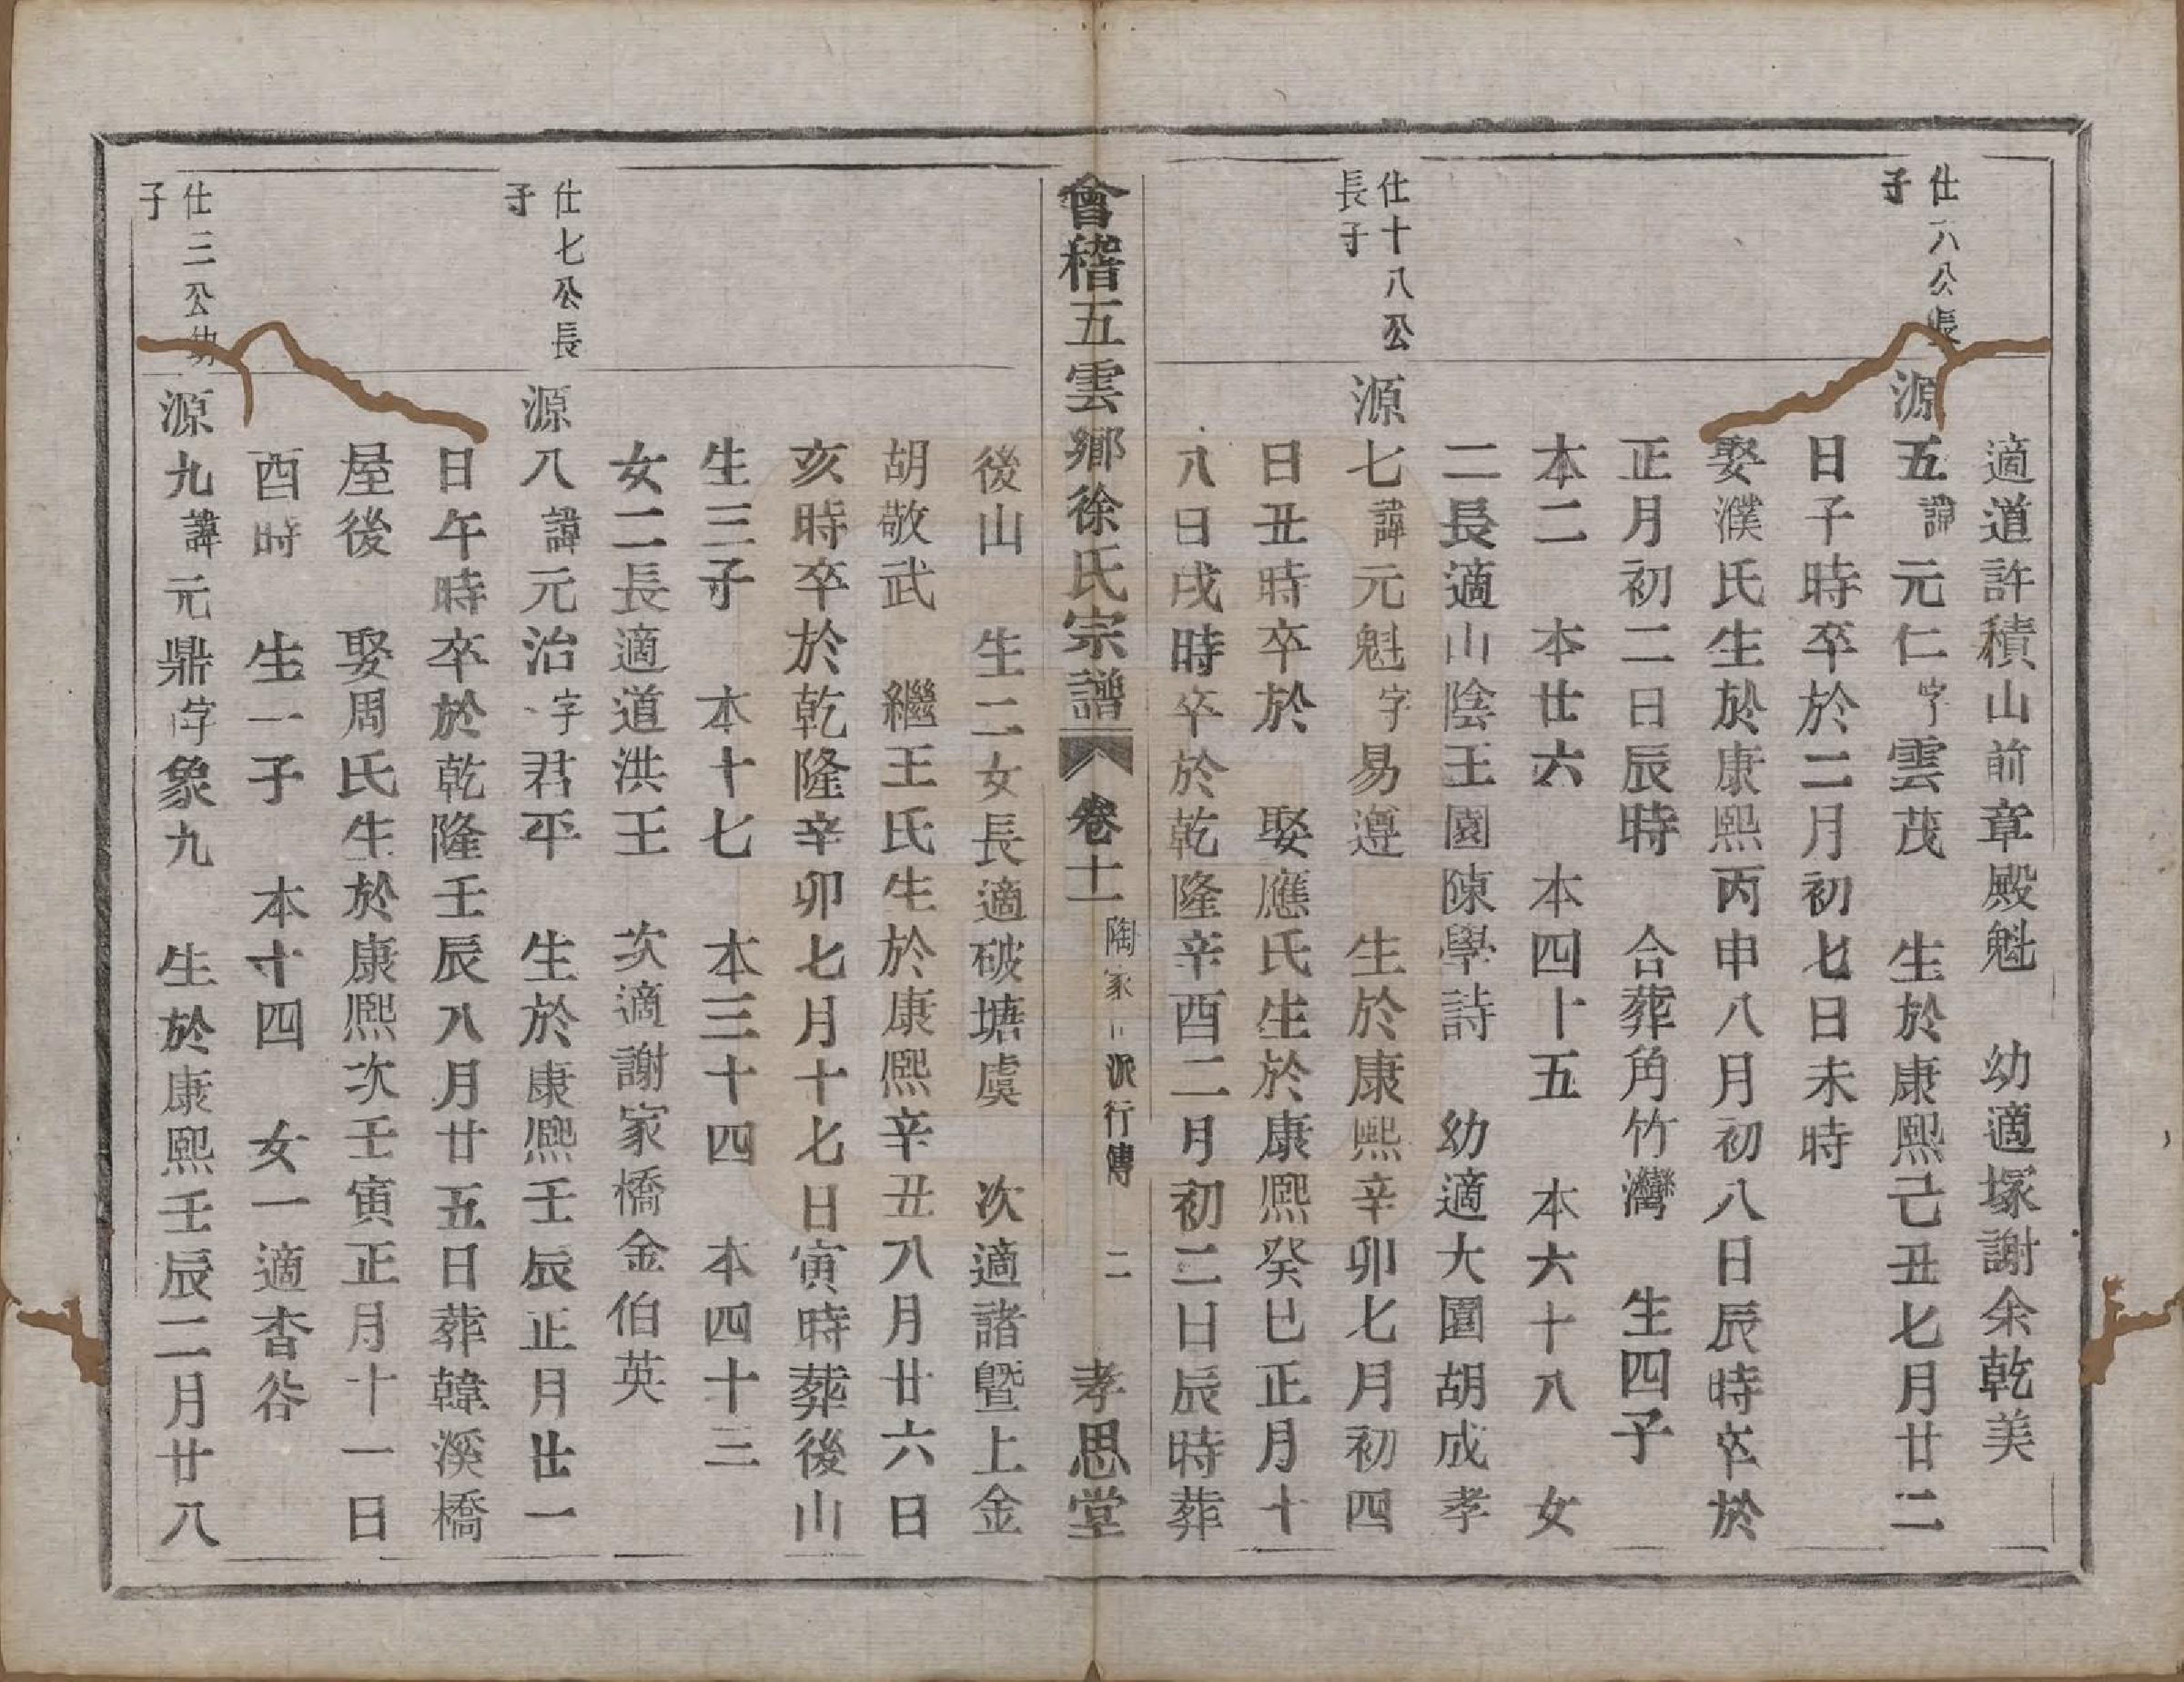 適道許積山前章殿魁　幼適塚謝余乾美
仕八公長子
源五諱元仁字雲茂　生於康熙己丑七月廿二
日子時卒於二月初七日未時
娶濮氏生於康熙丙申八月初八日辰時卒於
正月初二日辰時　合葬角竹灣　生四子
本二　本廿六　本四十五　本六十八　女
二長適山陰王園陳學詩　幼適大園胡成孝
仕十八公長子
源七諱元魁字易遵　生於康熙辛卯七月初四
日丑時卒於　娶應氏生於康熙癸巳正月十
八日戌時卒於乾隆辛酉二月初二日辰時葬
會稽五雲鄉徐氏宗譜　卷十一　陶家　派行傳　二　孝思堂
後山　生二女長適破塘虞　次適諸暨上金
胡敬武　繼王氏生於康熙辛丑八月廿六日
亥時卒於乾隆辛卯七月十七日寅時葬後山
生三子　本十七　本三十四　本四十三
女二長適道洪王　次適謝家橋金伯英
仕七公長子
源八諱元治字君平　生於康熙壬辰正月廿一
日午時卒於乾隆壬辰八月廿五日葬韓溪橋
屋後　娶周氏生於康熙次壬寅正月十一日
酉時　生一子　本十四　女一適杳谷
仕三公幼子
源九諱元鼎字象九　生於康熙壬辰二月廿八